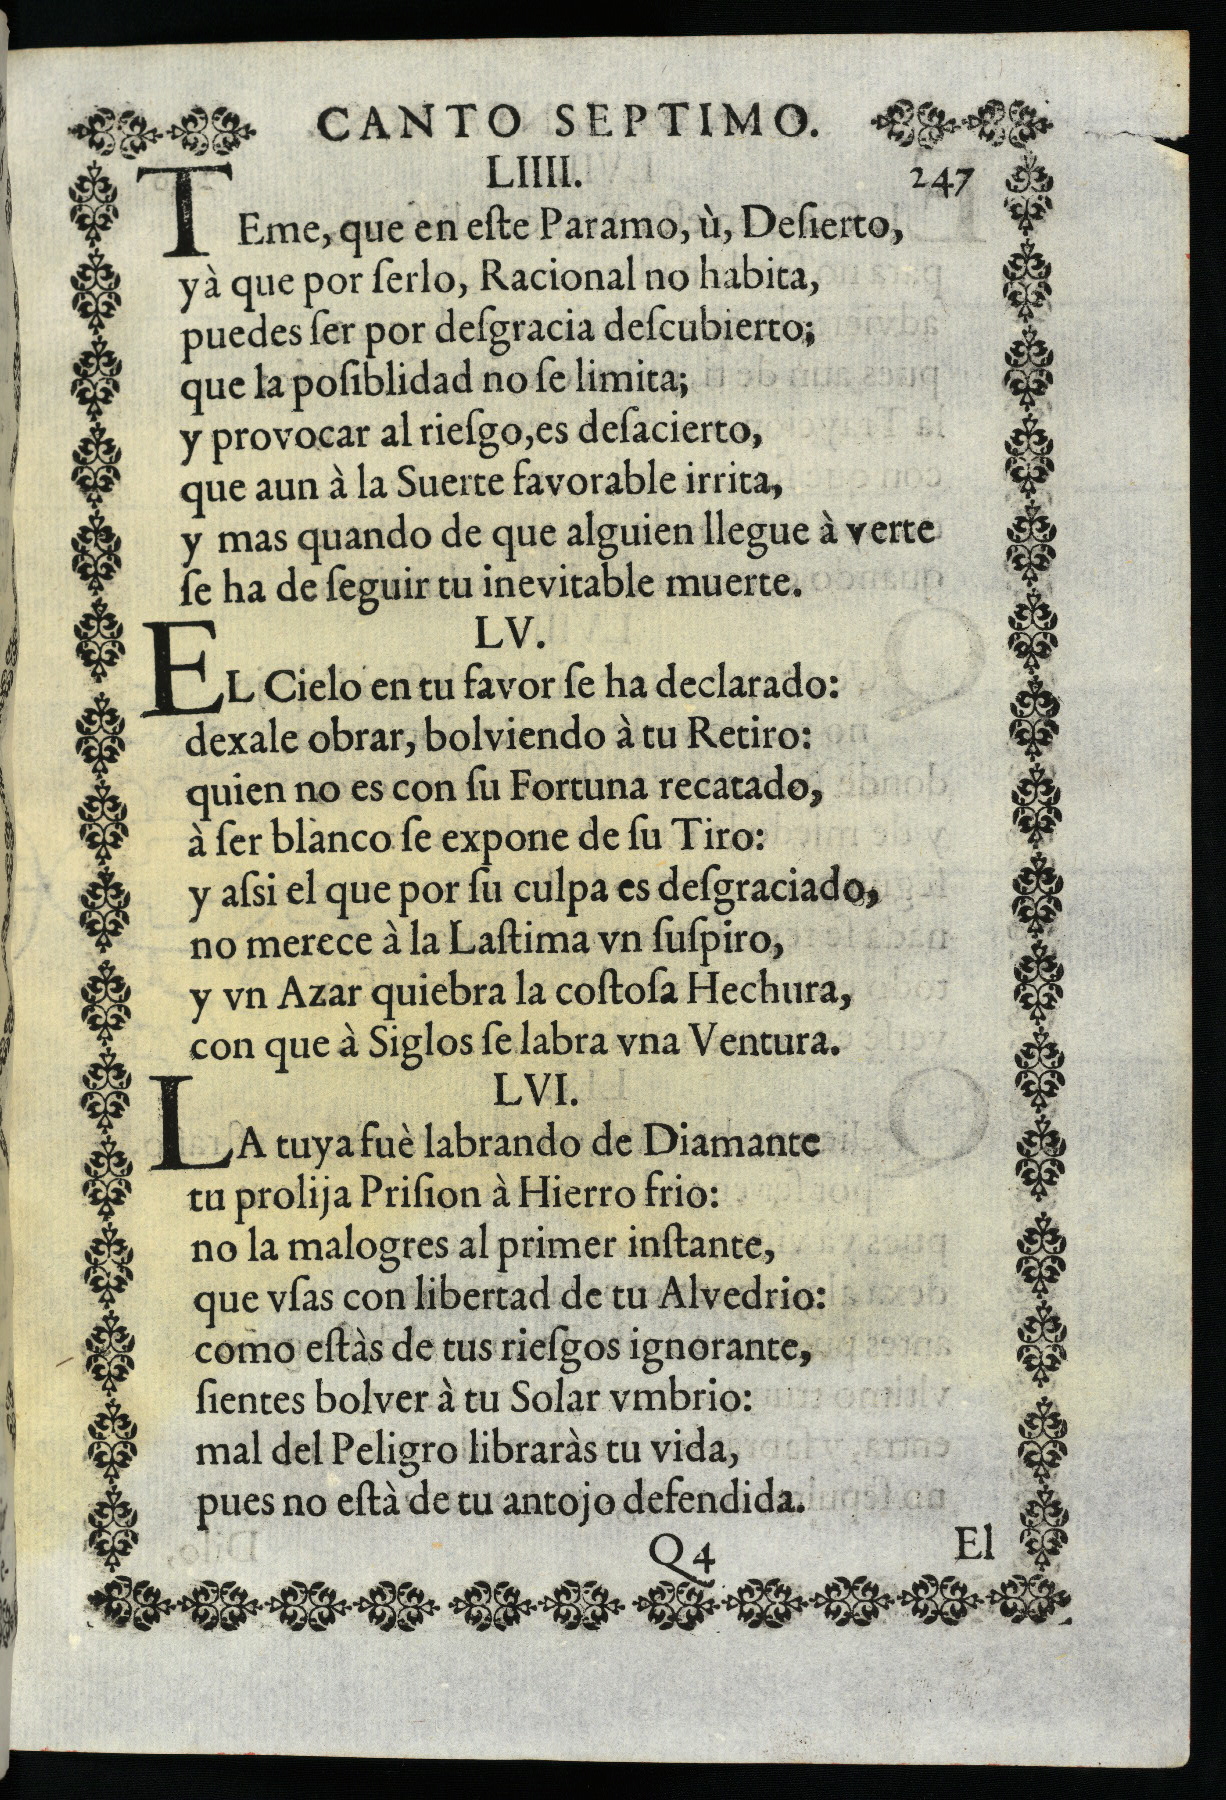 CANTO SEPTIMO.
LIIII. 247
TEme, que en eſte Paramo, ù, Deſierto,
yà que por ſerlo, Racional no habita,
puedes ſer por deſgracia deſcubierto;
que la poſiblidad no ſe limita;
y provocar al rieſgo, es deſacierto,
que aun à la Suerte favorable irrita,
y mas quando de que alguien llegue à verte
ſe ha de ſeguir tu inevitable muerte.
LV.
EL Cielo en tu favor ſe ha declarado:
dexale obrar, bolviendo à tu Retiro:
quien no es con ſu Fortuna recatado,
à ſer blanco ſe expone de ſu Tiro:
y aſsi el que por ſu culpa es deſgraciado,
no merece à la Laſtima vn ſuſpiro,
y vn Azar quiebra la coſtoſa Hechura,
con que à Siglos ſe labra vna Ventura.
LVI.
LA tuya fuè labrando de Diamante
tu prolija Priſion à Hierro frio:
no la malogres al primer inſtante,
que vſas con libertad de tu Alvedrio:
como eſtàs de tus rieſgos ignorante,
ſientes bolver à tu Solar vmbrio:
mal del Peligro libraràs tu vida,
pues no eſtà de tu antojo defendida.
Q4 El